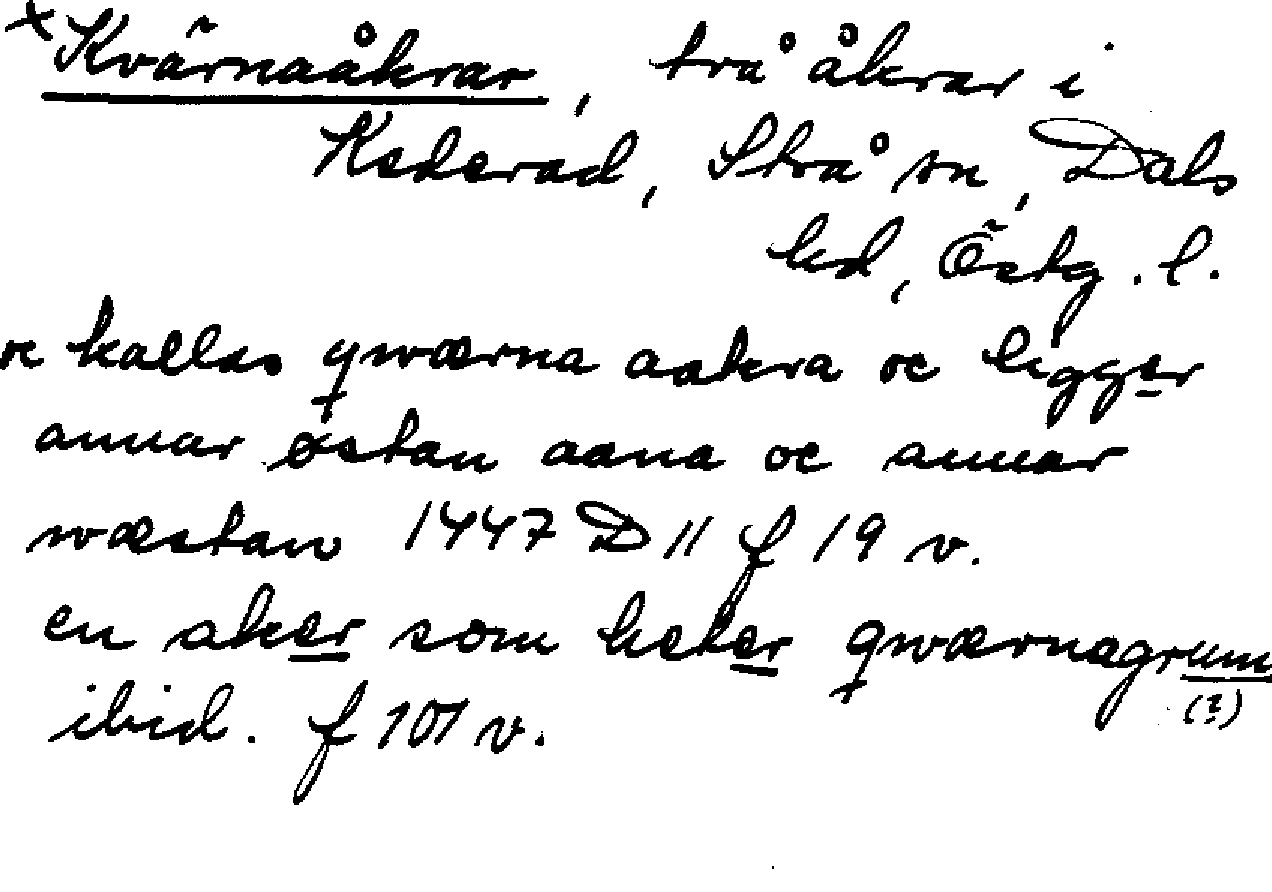 ×Kvärnaåkrar, två åkrar i
Hederad, Strå sn, Dals
hd, Östg. l.
oc kallas qwærna aakra oc ligger
annar østan aana oc annar
wæstan 1447 D 11 f 19 v.
en aker som heter qwærnagrum
(?)
ibid. f 101 v.